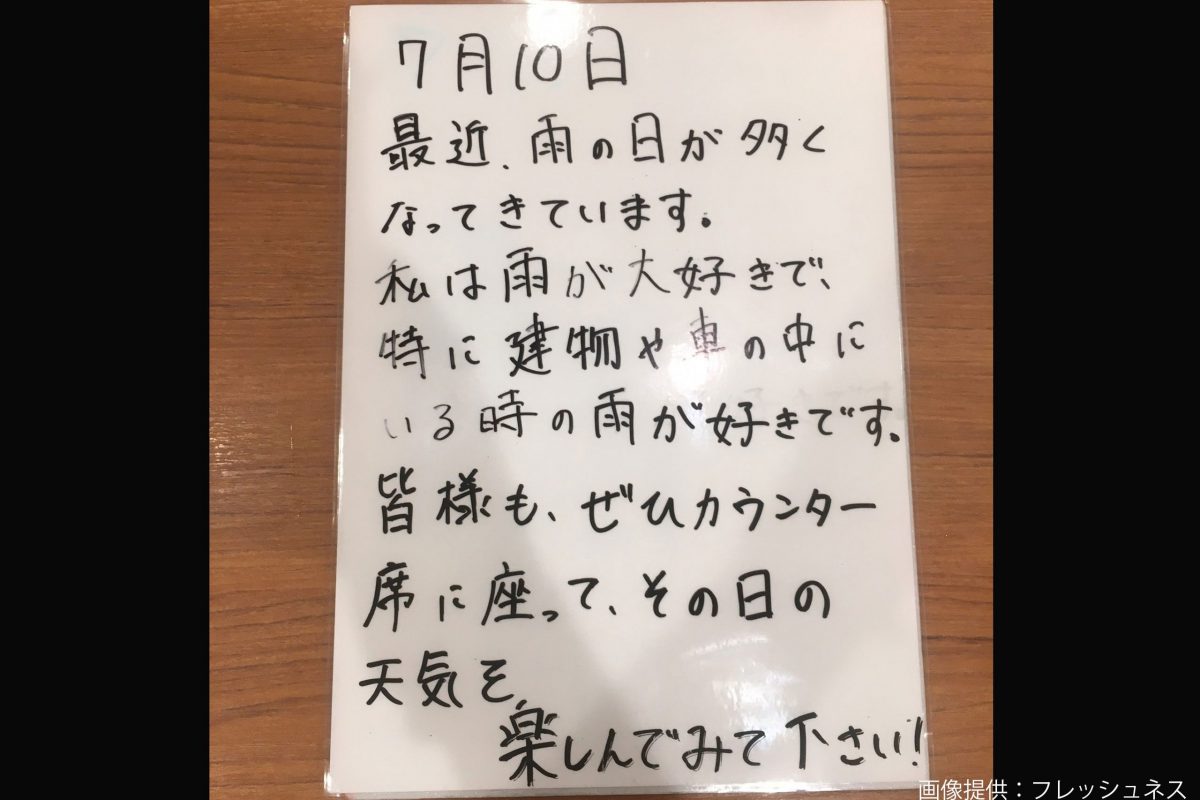 7月10日
最近、雨の日が多く
なってきています。
私は雨が大好きで、
特に建物や車の中に
いる時の雨が好きです。
皆様も、ぜひカウンター
席に座って、その日の
天気を
楽しんでみて下さい!
画像提供：フレッシュネス